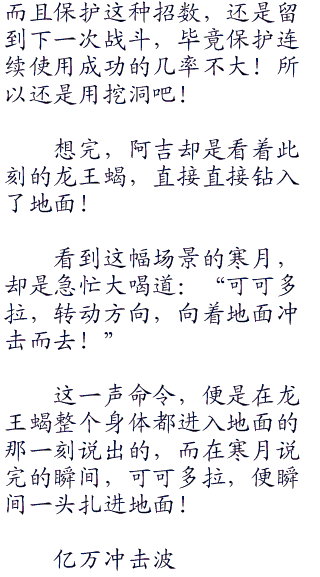 而且保护这种招数，还是留
到下一次战斗，毕竟保护连
续使用成功的几率不大！所
以还是用挖洞吧！
想完，阿吉却是看着此
刻的龙王蝎，直接直接钻入
了地面！
看到这幅场景的寒月，
却是急忙大喝道：“可可多
拉，转动方向，向着地面冲
击而去！”
这一声命令，便是在龙
王蝎整个身体都进入地面的
那一刻说出的，而在寒月说
完的瞬间，可可多拉，便瞬
间一头扎进地面！
亿万冲击波